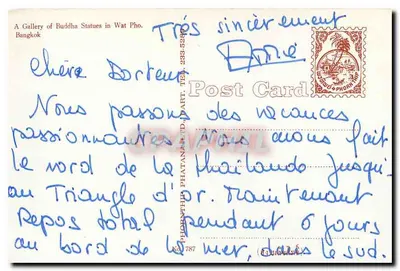 A Gallery of Buddha Statues in Wat Pho.
Bangkok
Très sincèrement
Chère Docteur
Post Card
Nous passons des vacances
passionnantes. Nous avons fait
le nord de la Thailande jusqu'
au Triangle d'or. Maintenant
Repos total pendant 6 jours
au bord de la mer, dans le sud.
787